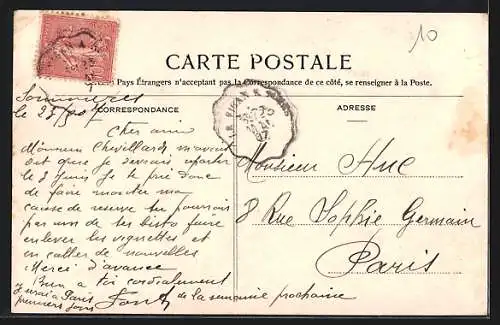 10
CARTE POSTALE
Pays Étrangers n'acceptant pas la Correspondance de ce côté, se renseigner à la Poste.
CORRESPONDANCE
ADRESSE
le 23
Cher ami
Monsieur Chevillard m'avait
dit que je devrais
le 2 Juin je te prie donc
de faire monter ma
caisse de reserve tu pourrais
par un de tes faire
enlever les vignettes et
en coller de nouvelles
Merci d'avance
Bien à toi cordialement
Je serai à Paris
premiers jours de la semaine prochaine
Monsieur Huc
8 Rue Sophie Germain
Paris